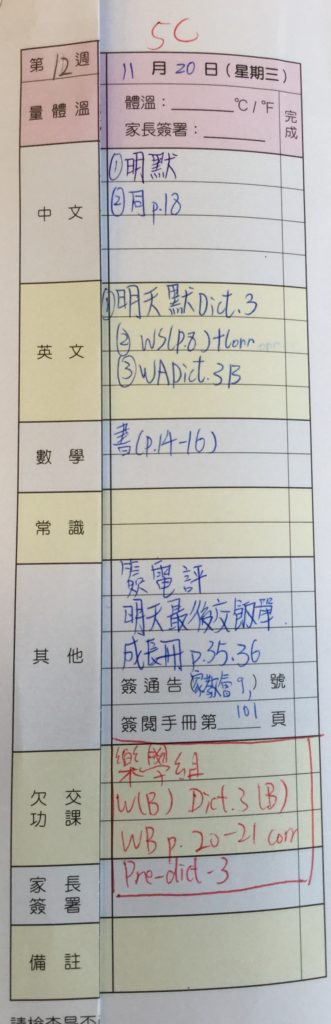 5C
第12週 11月20日(星期三)
量體溫 體溫：______°C/°F 完成
家長簽署：______
中文 ①明默
②月p.18
英文 ①明天默Dict.3
②WS(P.8)+Corr
③WADict.3B
數學 書(p.14-16)
常識
其他 簽電評
明天最後交飯單
成長冊p.35.36
簽通告(家教會9,)號
簽閱手冊第101頁
欠交功課 樂學組
W(B) Dict.3(B)
WB p.20-21 corr
Pre-dict-3
家長簽署
備註